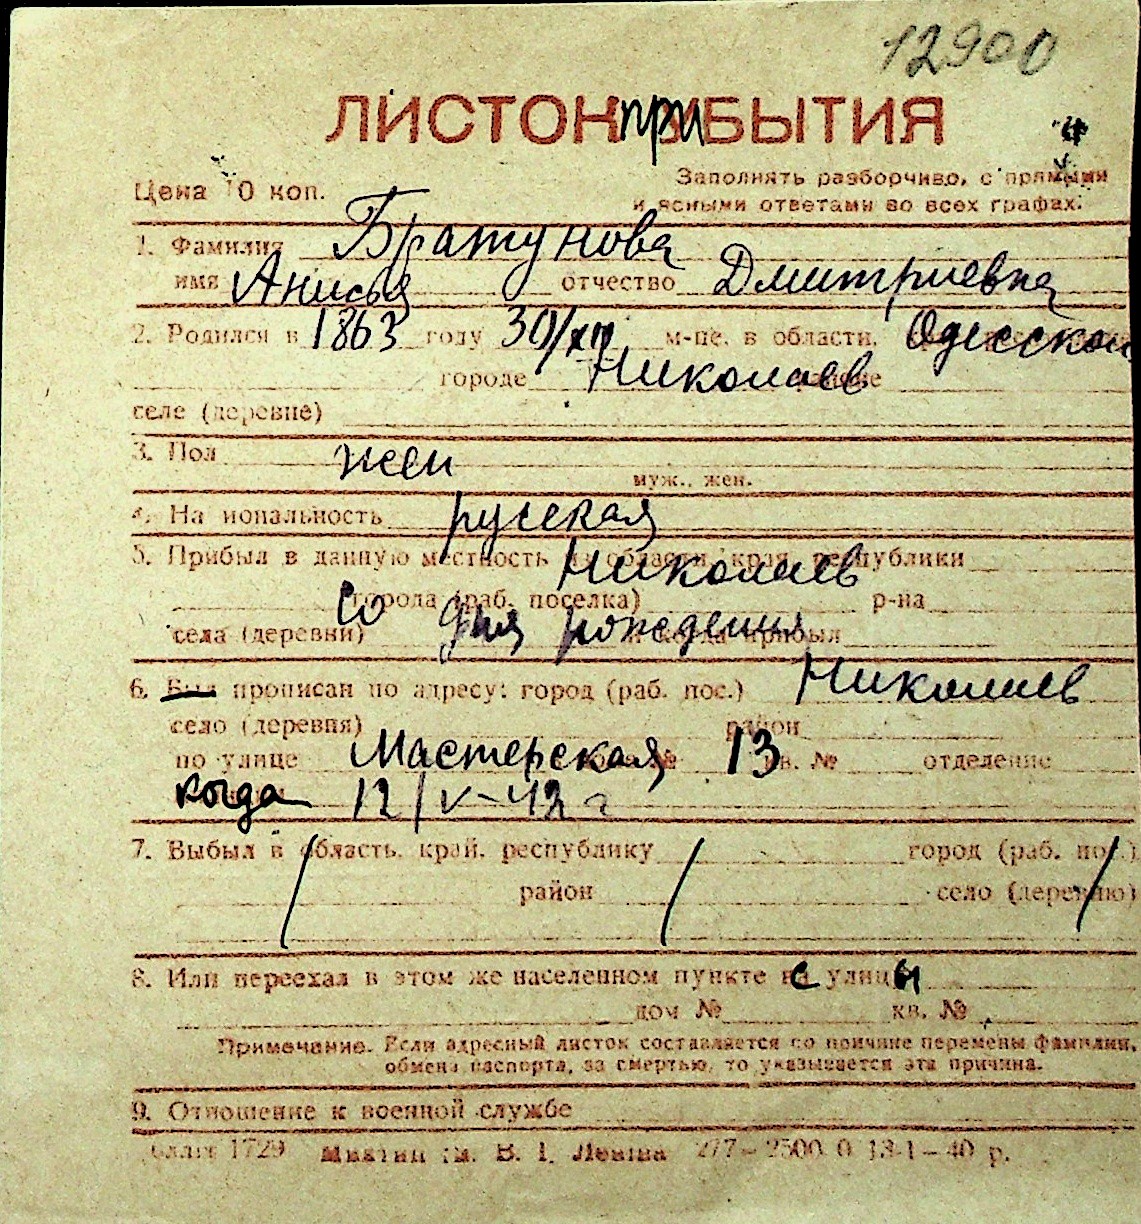 12900
ЛИСТОК при БЫТИЯ
Цена 10 коп.
Заполнять разборчиво, с прямыми
и ясными ответами во всех графах.
1. Фамилия Братунова
имя Анисья отчество Дмитриевна
2. Родился в 1863 году 30/XII м-це. в области, Одесской
городе Николаев
селе (деревне)
3. Пол жен
муж., жен.
4. Национальность русская
5. Прибыл в данную местность из области, края, республики
Николаев
города (раб. поселка) р-на
со дня рождения
села (деревни) и когда прибыл
6. Был прописан по адресу: город (раб. пос.) Николаев
село (деревня) район
по улице Мастерская 13 кв. № отделение
когда 12/V-42 г
7. Выбыл в область, край, республику город (раб. пос.)
район село (деревню)
8. Или переехал в этом же населенном пункте с улицы
дом № кв. №
Примечание. Если адресный листок составляется по причине перемены фамилии,
обмена паспорта, за смертью, то указывается эта причина.
9. Отношение к военной службе
1729 ім. В. І. Леніна 277—2500 0 13-1—40 р.